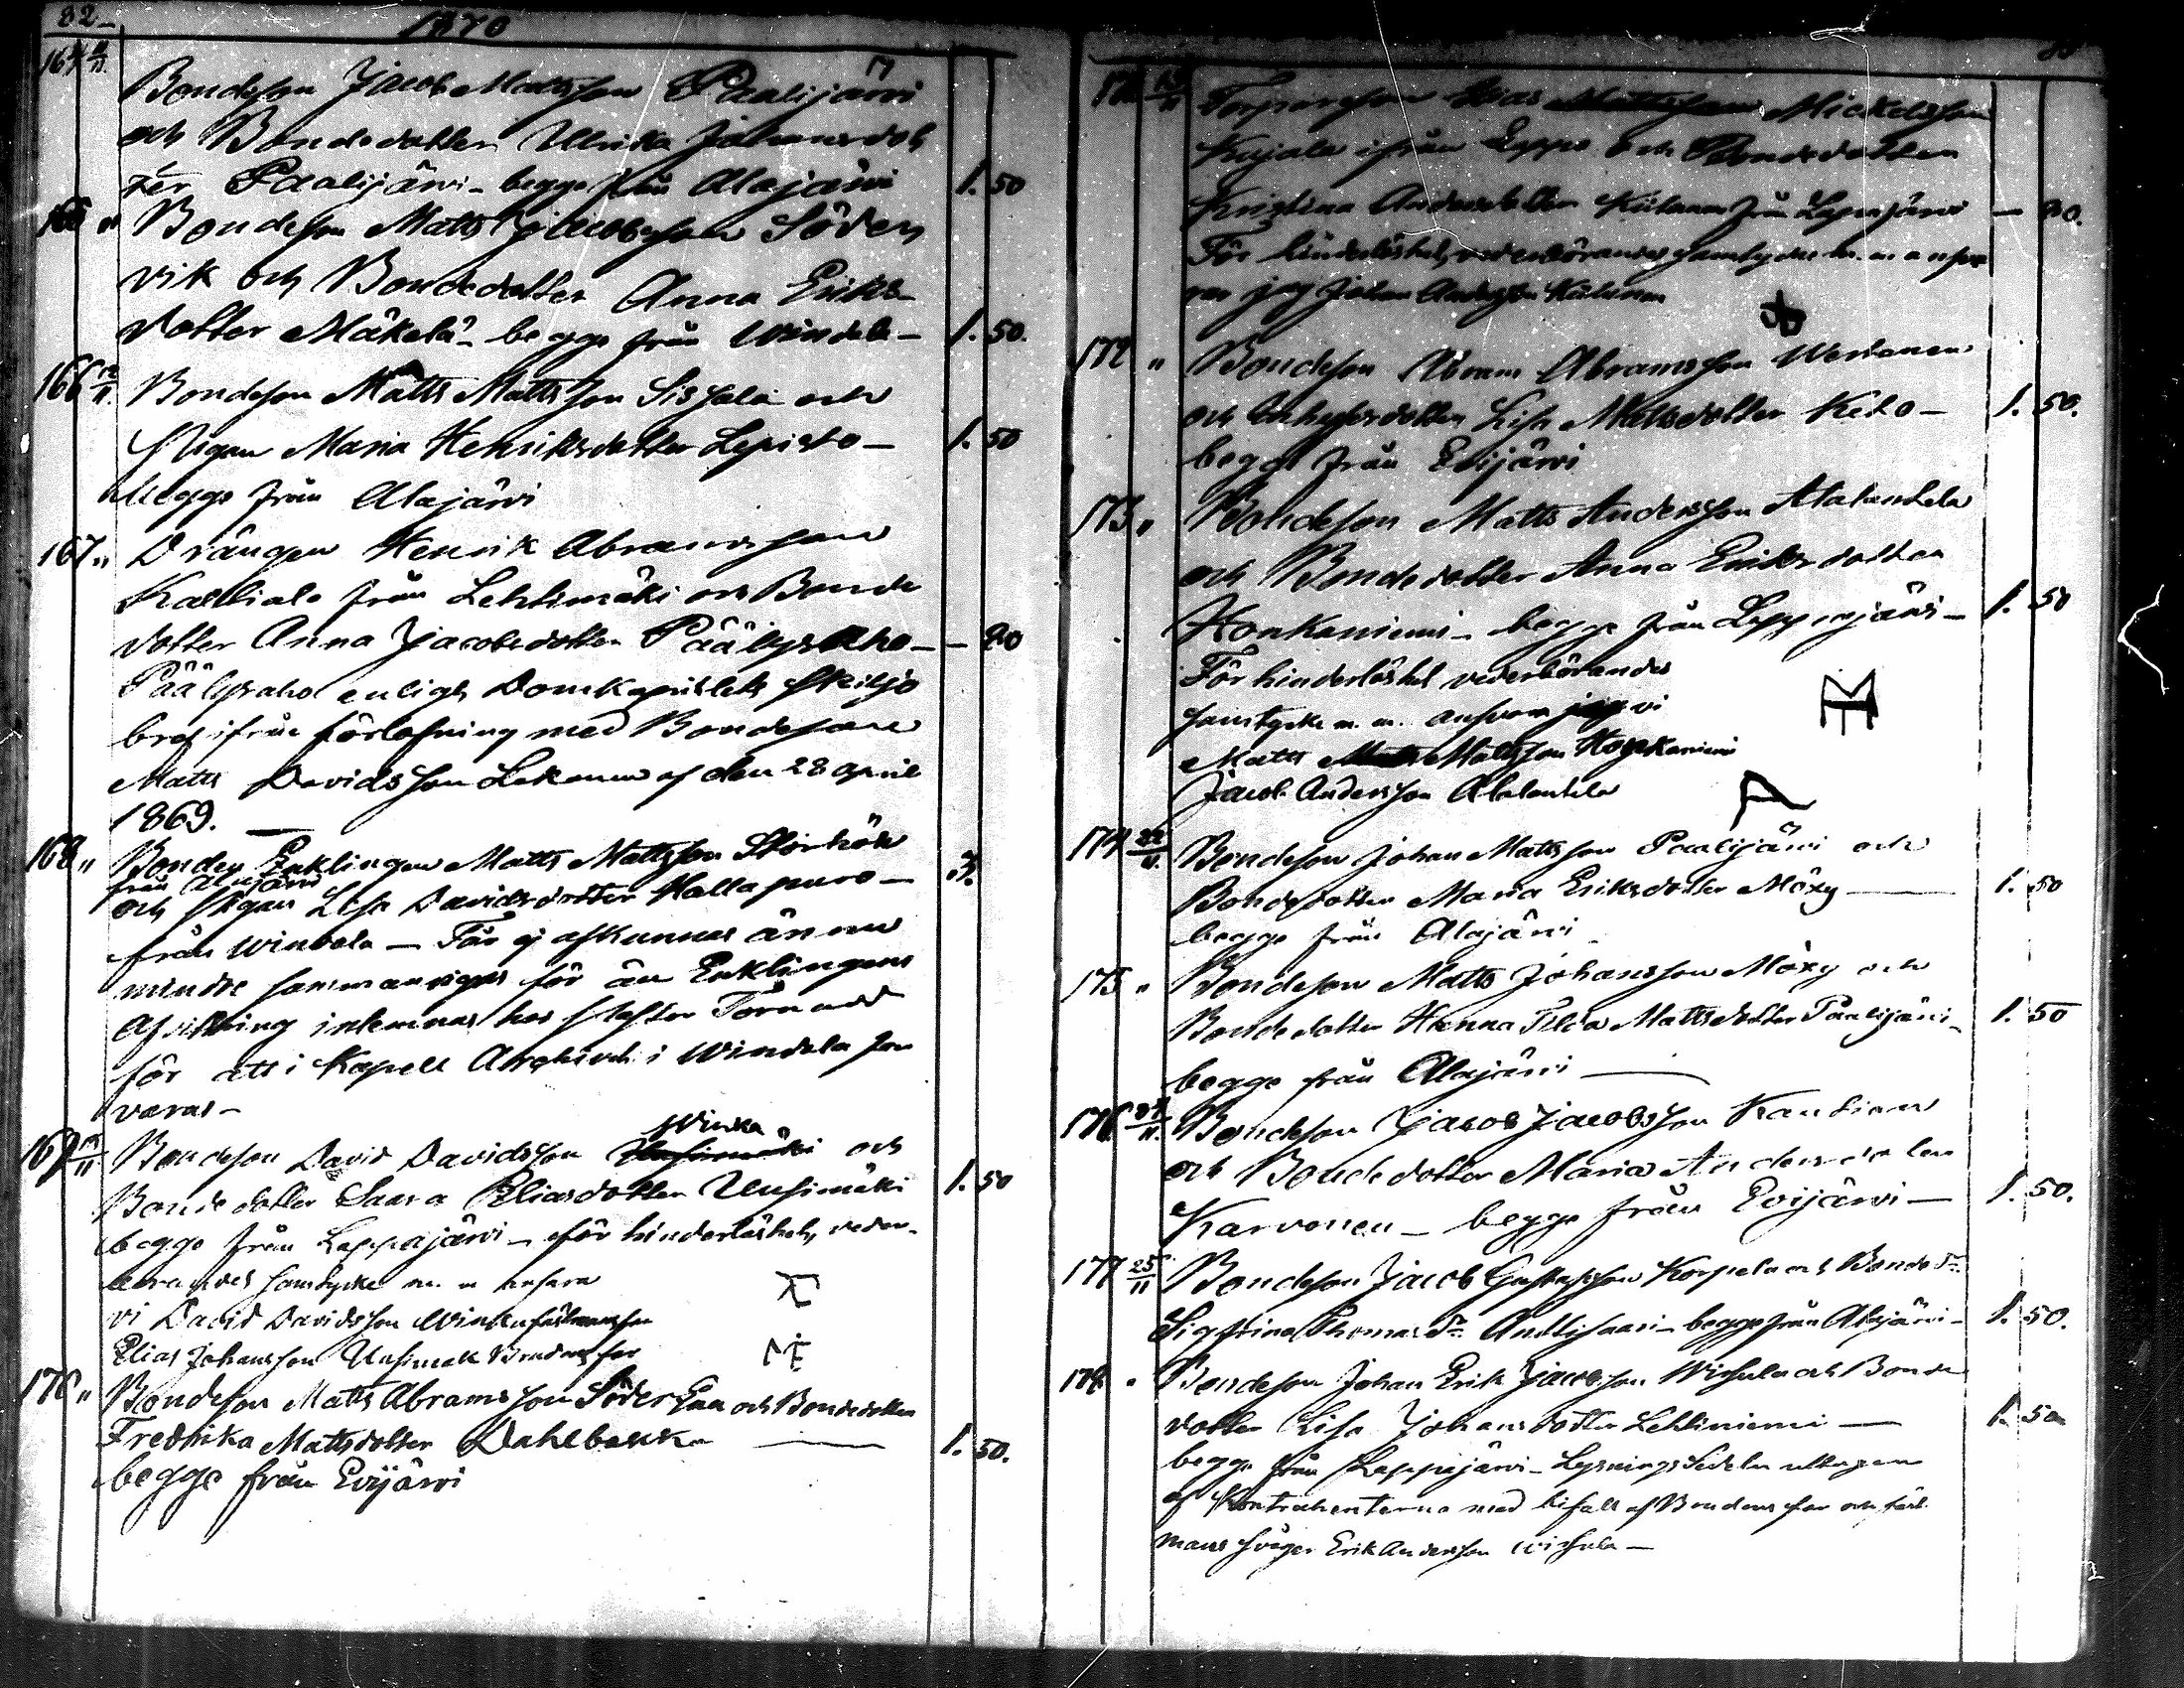 82
1870
164 11/11.
Bondeson Jacob Mattsson Paalijärvi
och Bondedotter Ulrika Johansdot
ter Paalijärvi - begge från Alajärvi 1. 50
165 " Bondeson Matts Jacobsson Söder
vik och Bondedotter Anna Eriks-
dotter Mäkelä - begge från Windala - 1. 50.
166 12/11. Bondeson Matts Mattsson och
Pigan Maria Henriksdotter Lepisto - 1. 50
begge från Alajärvi
167 " Drängen Henrik Abramsson
Kalliala från Lehtimäki och Bonde
dotter Anna Jacobsdotter Päälysaho - - 20
Päälysaho enligt Domkapitlets skiljo
bref ifrån förlofning med Bondesonen
Matts Davidsson af den 28 April
1869.
168 " Bonden Enklingen Matts Mattsson Storhök
från Alajärvi
och Pigan Lisa Davidsdotter Hallapuro - 3.
från Windala - Får ej afkunnas ännu
mindre sammanvigas för än Enklingens
Afvittring inlemnas hos Pastor Törnudd
för att i Kapell Archivet i Windala för
varas -
Winka
169 13/11 Bondeson David Davidsson Uusimäki och
Bondedotter Saara Eliasdotter Uusimäki 1. 50
begge från Lappajärvi - för hinderlöshet, veder-
börandes samtycke m. m ansvara
vi David Davidsson Winka
Elias Johansson Uusimäk Brudens far
170 " Bondeson Matts Abramsson och Bondedotter
Fredrika Mattsdotter Dahlbacka 1. 50.
begge från Evijärvi
Torparson Elias Mattsson Mickelsson
Kujala ifrån Lappo och Bondedotter
Kristina Andersdotter från Lappajärvi - 20.
För hinderlöshet, vederbörandes samtycke m. m ansva
rar jag Johan Andersson
172 " Bondeson Abram Abramsson
och Inhysesdotter Lisa Mattsdotter Keto - 1. 50.
begge från Evijärvi
173 " Bondeson Matts Andersson Alatantela
och Bondedotter Anna Eriksdotter
Honkaniemi - begge från Lappajärvi - 1. 50
För hinderlöshet vederbörandes
samtycke m. m. ansvara vi
Matts Mattsson Honkaniemi
Jacob Andersson Alatantela
174 22/11. Bondeson Johan Mattsson Paalijärvi och
Bondedotter Maria Eriksdotter Möxy 1. 50
begge från Alajärvi
175 " Bondeson Matts Johansson Möxy och
Bondedotter Hanna Tilda Mattsdotter Paalijärvi - 1. 50
begge från Alajärvi
176 24/11. Bondeson Jacob Jacobsson
och Bondedotter Maria Andersdotter
Karvonen - begge från Evijärvi - 1. 50.
177 25/11 Bondeson Jacob Gustafsson Korpela och Bonde Dr
Sigfrina Thomas Dr Anttisaari - begge från Alajärvi - 1. 50.
178 " Bondeson Johan Erik Jacobsson Wirsula och Bonde
dotter Lisa Johansdotter Lehtiniemi 1. 50
begge från Lappajärvi - Lysningssedeln uttagen
af Kontrahenterna med bifall af Brudens far och fäst
mans svåger Erik Andersson Wirsula -